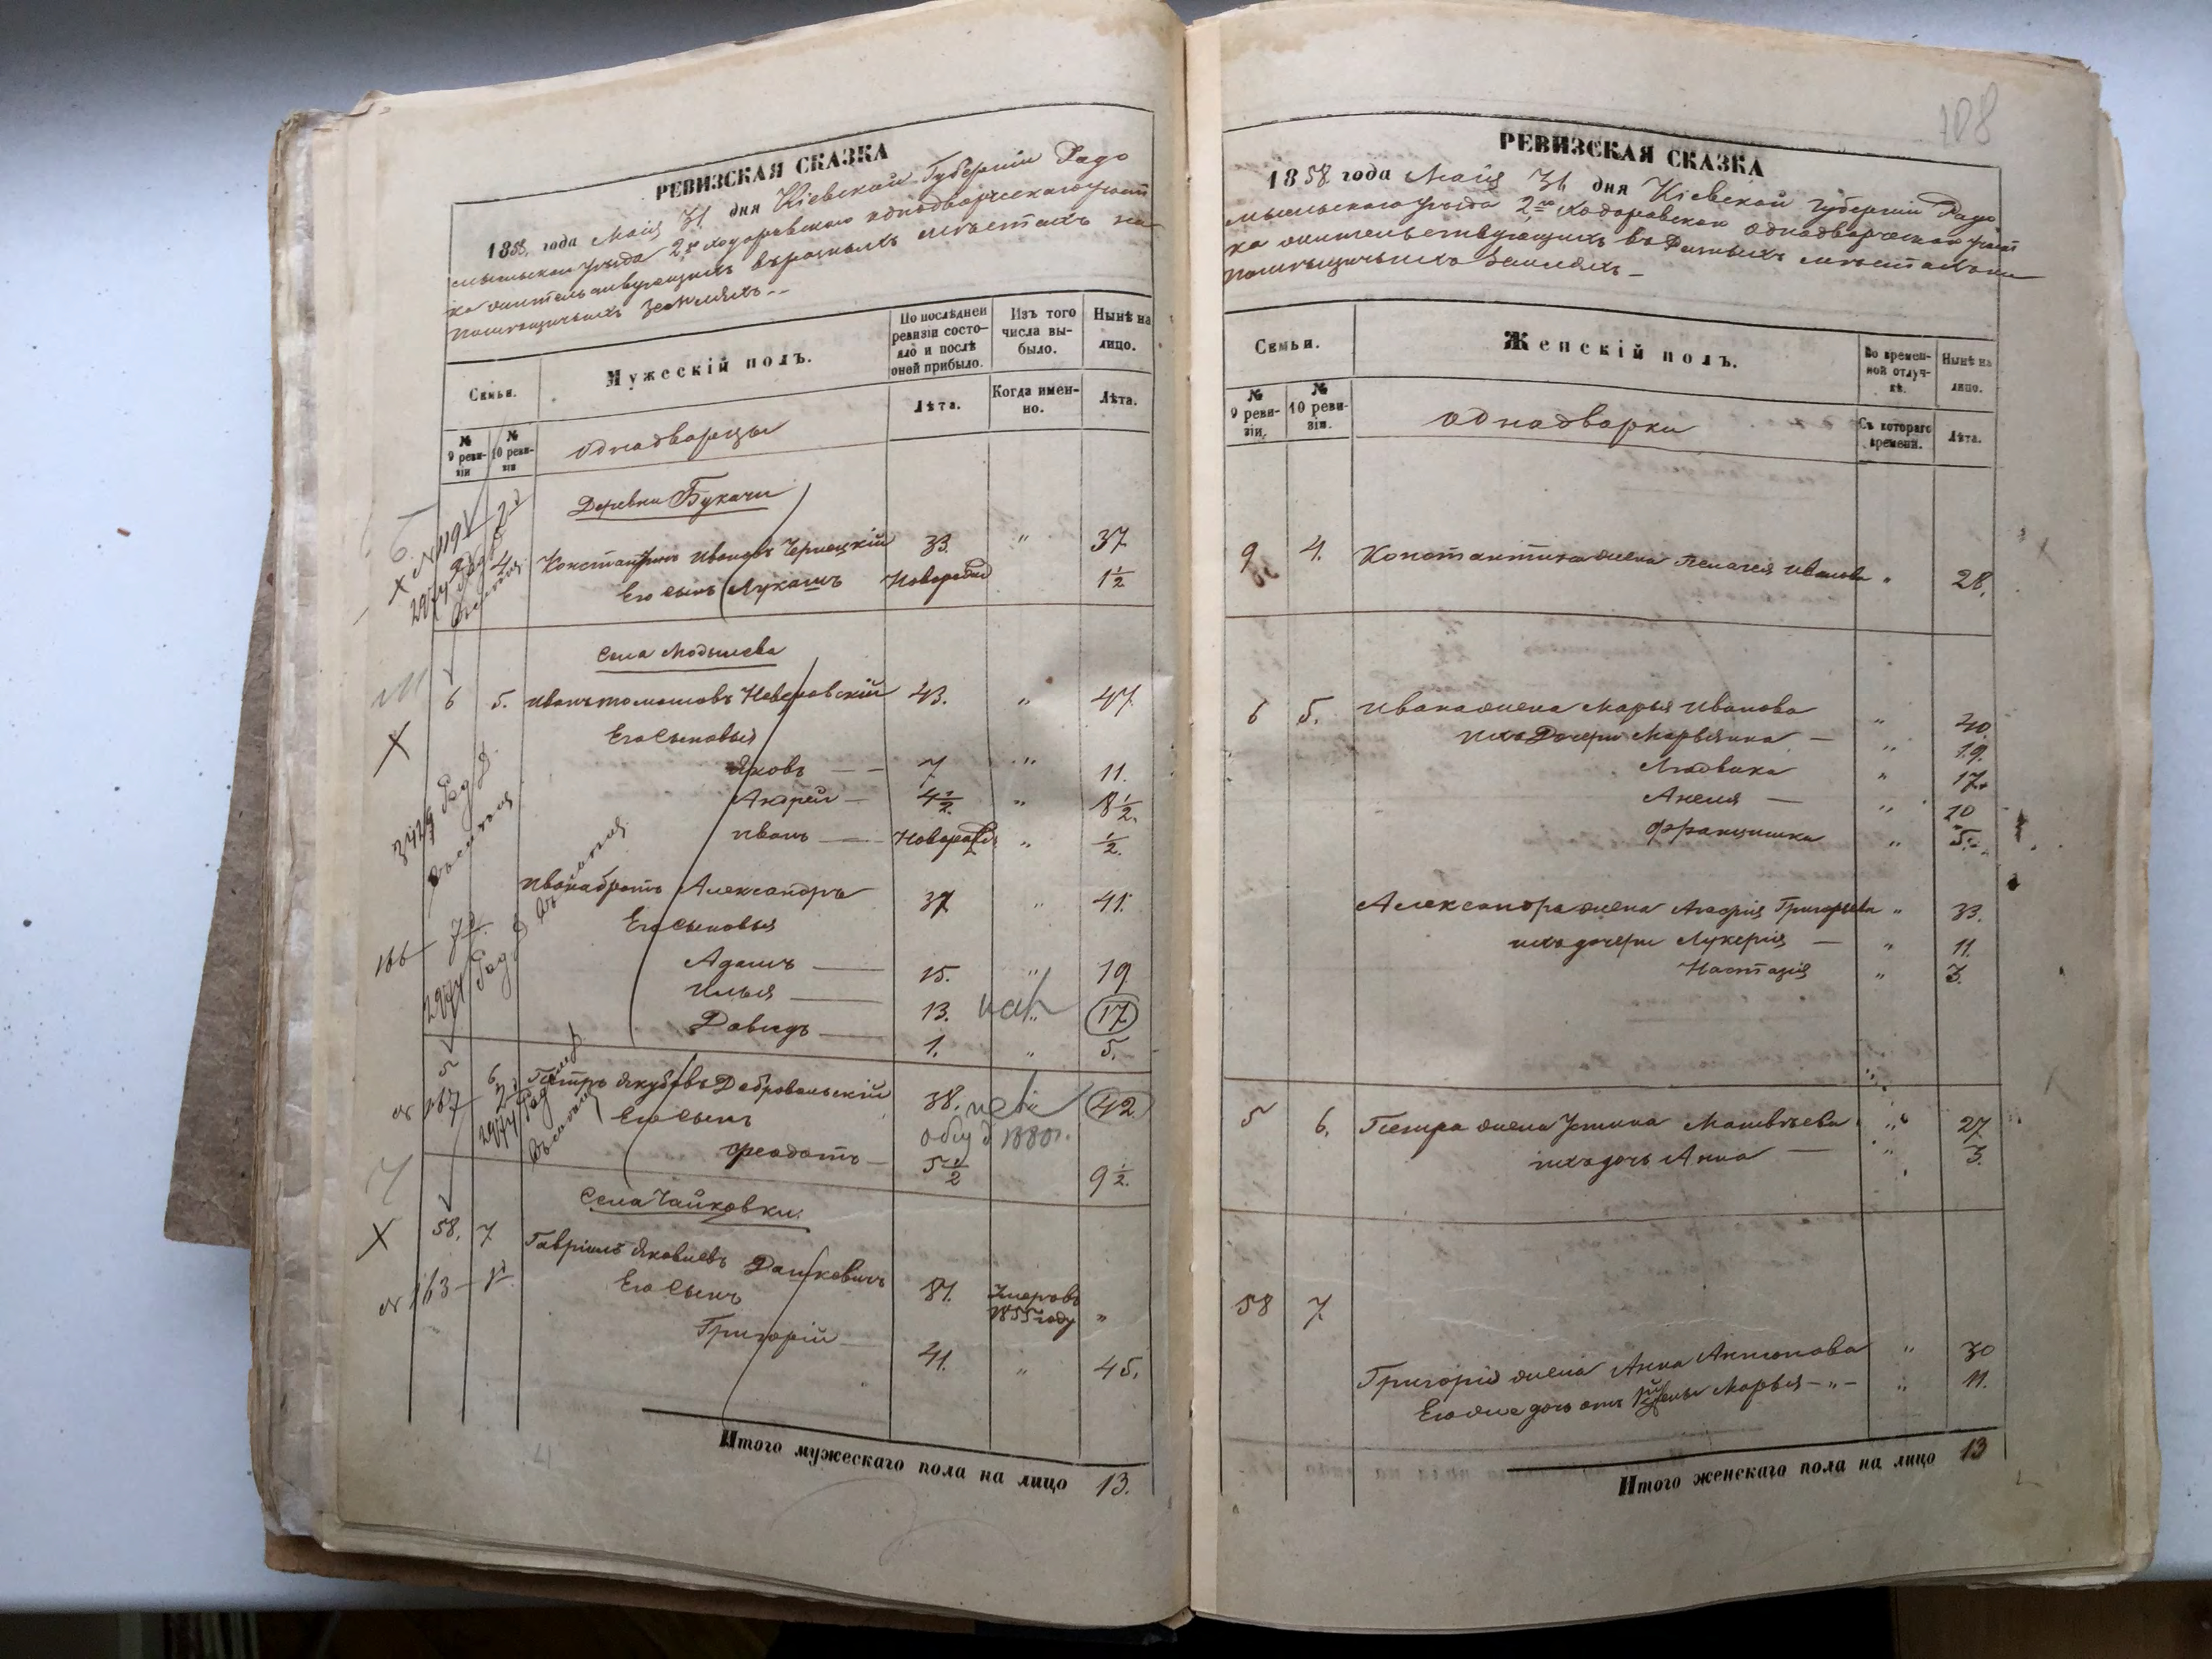 РЕВИЗСКАЯ СКАЗКА
1858 года Маія 31 дня Кіевской Губерніи Радо
мысльскаго уѣзда 2го Ходоровскаго однодворческаго участ
ка жительствующихъ въ разныхъ мѣстахъ на
помѣщичьихъ земляхъ
Семьи.
Мужескій полъ.
По послѣдней ревизіи состояло и послѣ оной прибыло.
Изъ того числа выбыло.
Нынѣ на лицо.
№ 9 ревизіи
№ 10 ревизіи
однодворцы
Лѣта.
Когда именно.
Лѣта.
Деревни Букачи
9 4. Константинъ Ивановъ Чернецкій 33. " 37
Его сынъ Лукашъ Новорожд 1 1/2
Села Модылева
6 5. Иванъ Томашовъ Неверовскій 43. " 47.
Его сыновья
Яковъ — 7. " 11.
Андрей — 4 1/2. " 8 1/2.
Иванъ — Новорожд " 1/2.
Ивана братъ Александръ 37 " 41.
Его сыновья
Адамъ — 15. " 19.
Илья — 13. " 17
Давидъ — 1. " 5.
5 6. Петръ Якубовъ Добровольскій 38. " 42
Его сынъ
Феодотъ — 5 1/2 9 1/2.
Села Чайковки.
58. 7 Гавріилъ Яковлевъ Дашкевичъ 87. Умеръ въ 1855 году "
Его сынъ
Григорій — 41. " 45.
Итого мужескаго пола на лицо 13.
108
РЕВИЗСКАЯ СКАЗКА
1858 года Маія 31 дня Кіевской Губерніи Радо
мысльскаго уѣзда 2го Ходоровскаго однодворческаго участ
ка жительствующихъ въ разныхъ мѣстахъ на
помѣщичьихъ земляхъ
Семьи.
Женскій полъ.
Во временной отлучкѣ.
Нынѣ на лицо.
№ 9 ревизіи.
№ 10 ревизіи.
однодворки
Съ котораго времени.
Лѣта.
9 4. Константина жена Пелагея Иванова " 28.
6 5. Ивана жена Марья Иванова " 40.
ихъ Дочери Марьянна — " 19.
Людвика " 17.
Анеля — " 10
Францишка " 5.
Александра жена Агафія Григорьева " 33.
ихъ дочери Лукерія — " 11.
Настазія " 3.
5 6. Петра жена Устина Матвѣева " 27
ихъ дочь Анна — " 3.
58 7.
Григорія жена Анна Антонова " 30
Его же дочь отъ 1й жены Марья — " — " 11.
Итого женскаго пола на лицо 13